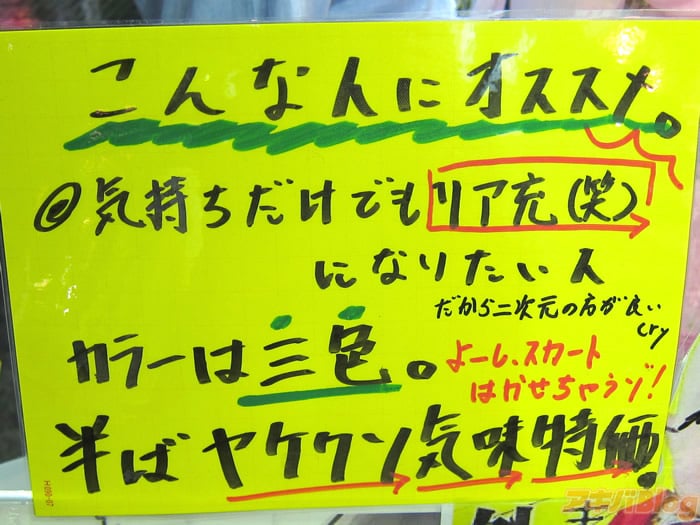 こんな人にオススメ。
@気持ちだけでもリア充(笑)
になりたい人
だから二次元の方が良い
cry
カラーは三色。
よーし、スカート
はかせちゃうゾ!
半ばヤケクソ気味特価!
H090-07
アキバBlog